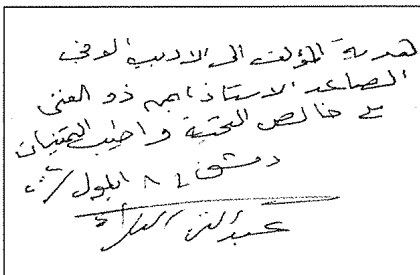 هدية المؤلف الى الاديب الوفي
الصاعد الاستاذ ذو الغنى
مع خالص التحية واطيب التمنيات
دمشق ٨ ايلول